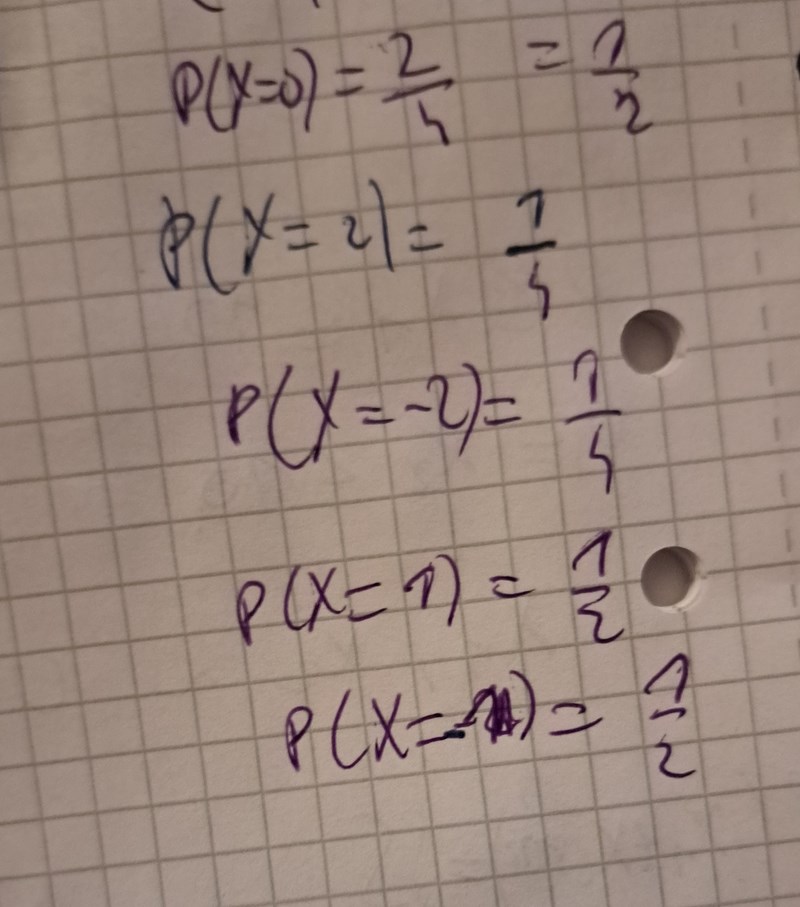 P(X=0) = 2/4 = 1/2
P(X=2) = 1/4
P(X=-2) = 1/4
P(X=1) = 1/2
P(X=-1) = 1/2